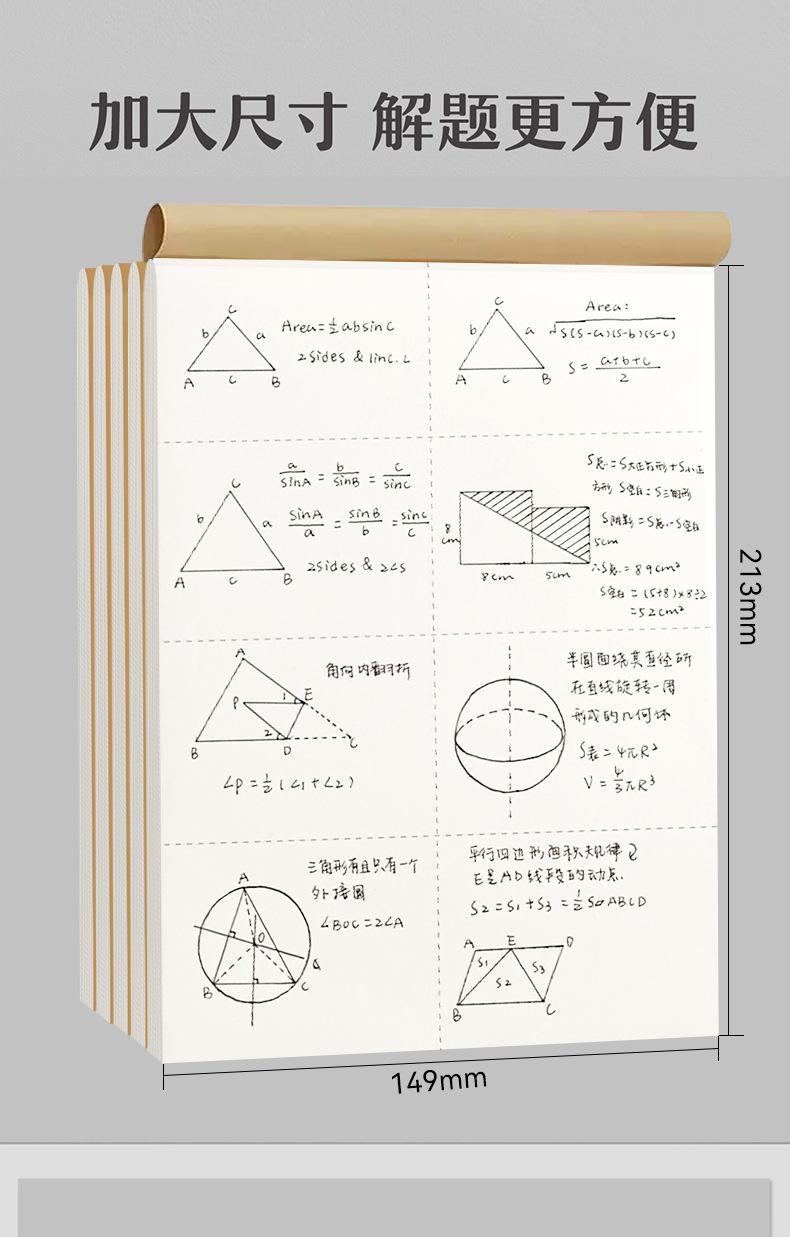 加大尺寸 解题更方便
C
b
a
A
c
B
Area=½absinC
2sides & 1inc.∠
C
b
a
A
c
B
Area:
√s(s-a)(s-b)(s-c)
S=(a+b+c)/2
C
b
a
A
c
B
a/sinA = b/sinB = c/sinC
sinA/a = sinB/b = sinC/c
2sides & 2∠s
8
cm
8cm
5cm
5cm
S总=S大正方形+S小正
方形 S空白=S三角形
S阴影=S总-S空白
∴S总=89cm²
S空白=(5+8)×8÷2
=52cm²
A
P
1
E
2
B
D
C
角何内翻折
∠P=½(∠1+∠2)
半圆面绕其直径所
在直线旋转一周
形成的几何体
S表=4πR²
V=4/3πR³
三角形有且只有一个
外接圆
∠BOC=2∠A
A
O
B
C
平行四边形面积规律②
E是AD线段的动点.
S2=S1+S3=½S▱ABCD
A
E
D
S1
S2
S3
B
C
213mm
149mm